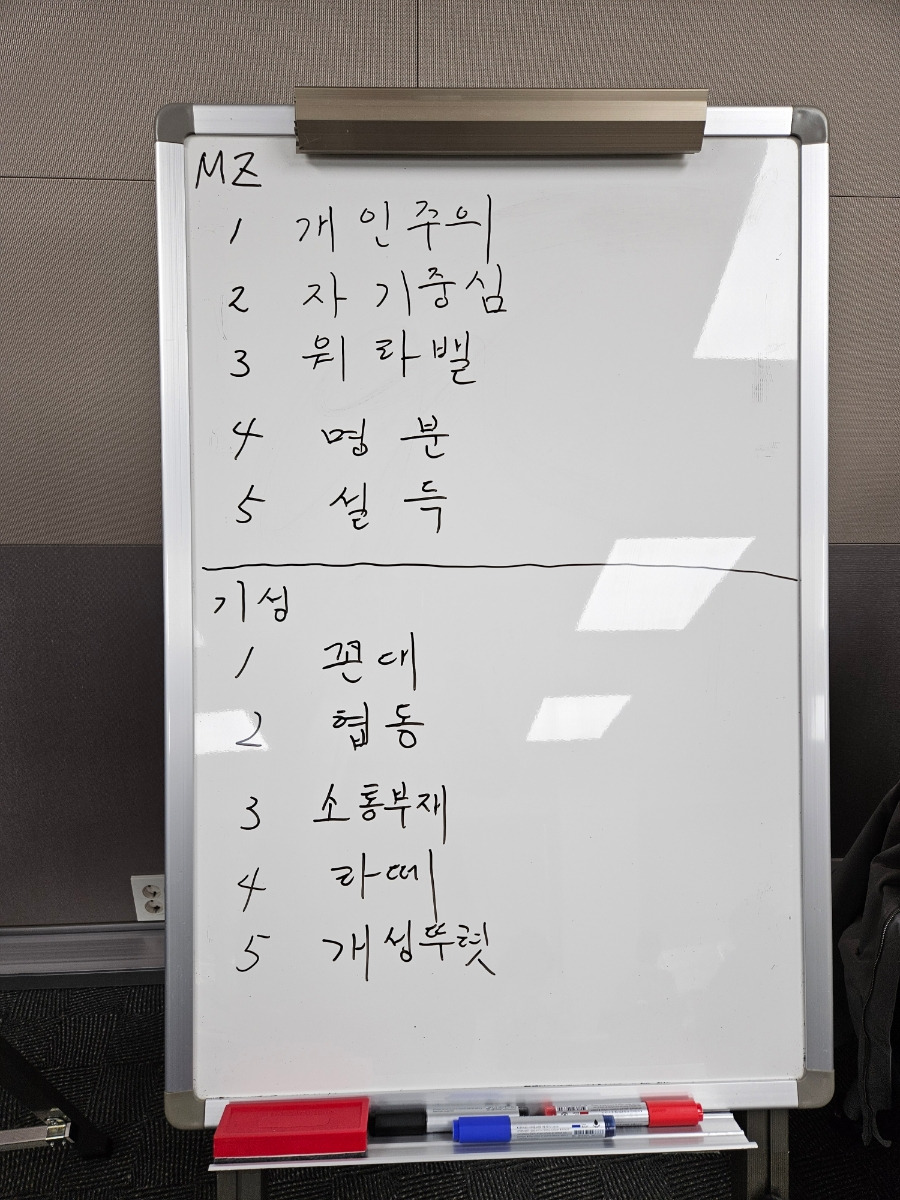 MZ
1 개인주의
2 자기중심
3 워라밸
4 명분
5 설득
기성
1 꼰대
2 협동
3 소통부재
4 라떼
5 개성뚜렷